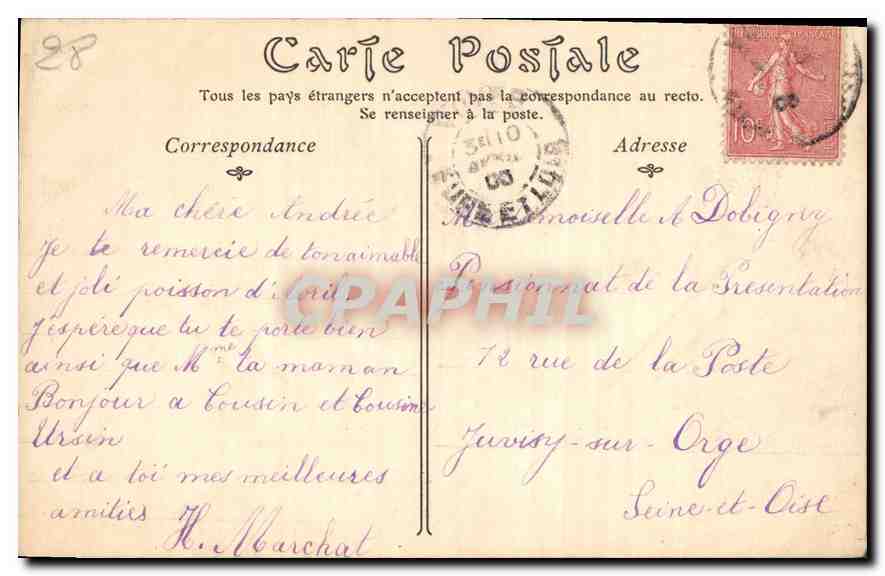 28
Carte Postale
Tous les pays étrangers n'acceptent pas la correspondance au recto.
Se renseigner à la poste.
Correspondance
Ma chère Andrée
Je te remercie de ton aimable
et joli poisson d'Avril
j'espère que tu te porte bien
ainsi que Mme ta maman
Bonjour a Cousin et Cousine
Ursin
et a toi mes meilleures
amitiés
H. Marchat
Adresse
Mademoiselle A Dobigny
Pensionnat de la Presentation
12 rue de la Poste
Juvisy-sur-Orge
Seine-et-Oise
FRANÇAISE
10
3E 10
EURE ET LOIR
CPAPHIL